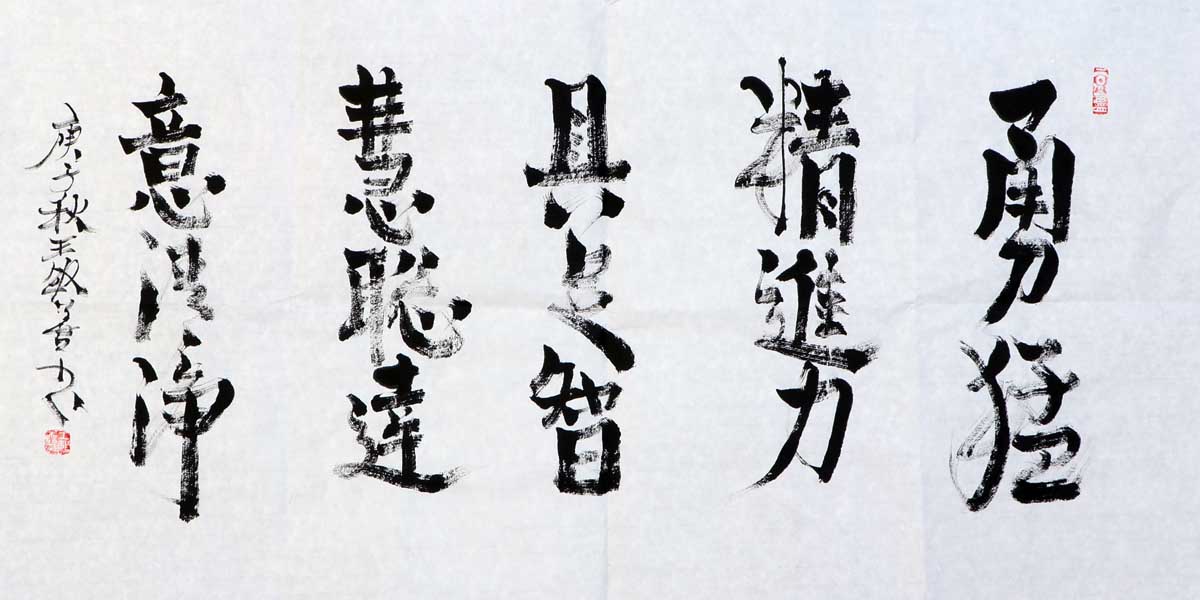 勇猛
精進力
具足智
慧聰達
意清淨
庚子秋王敏善書